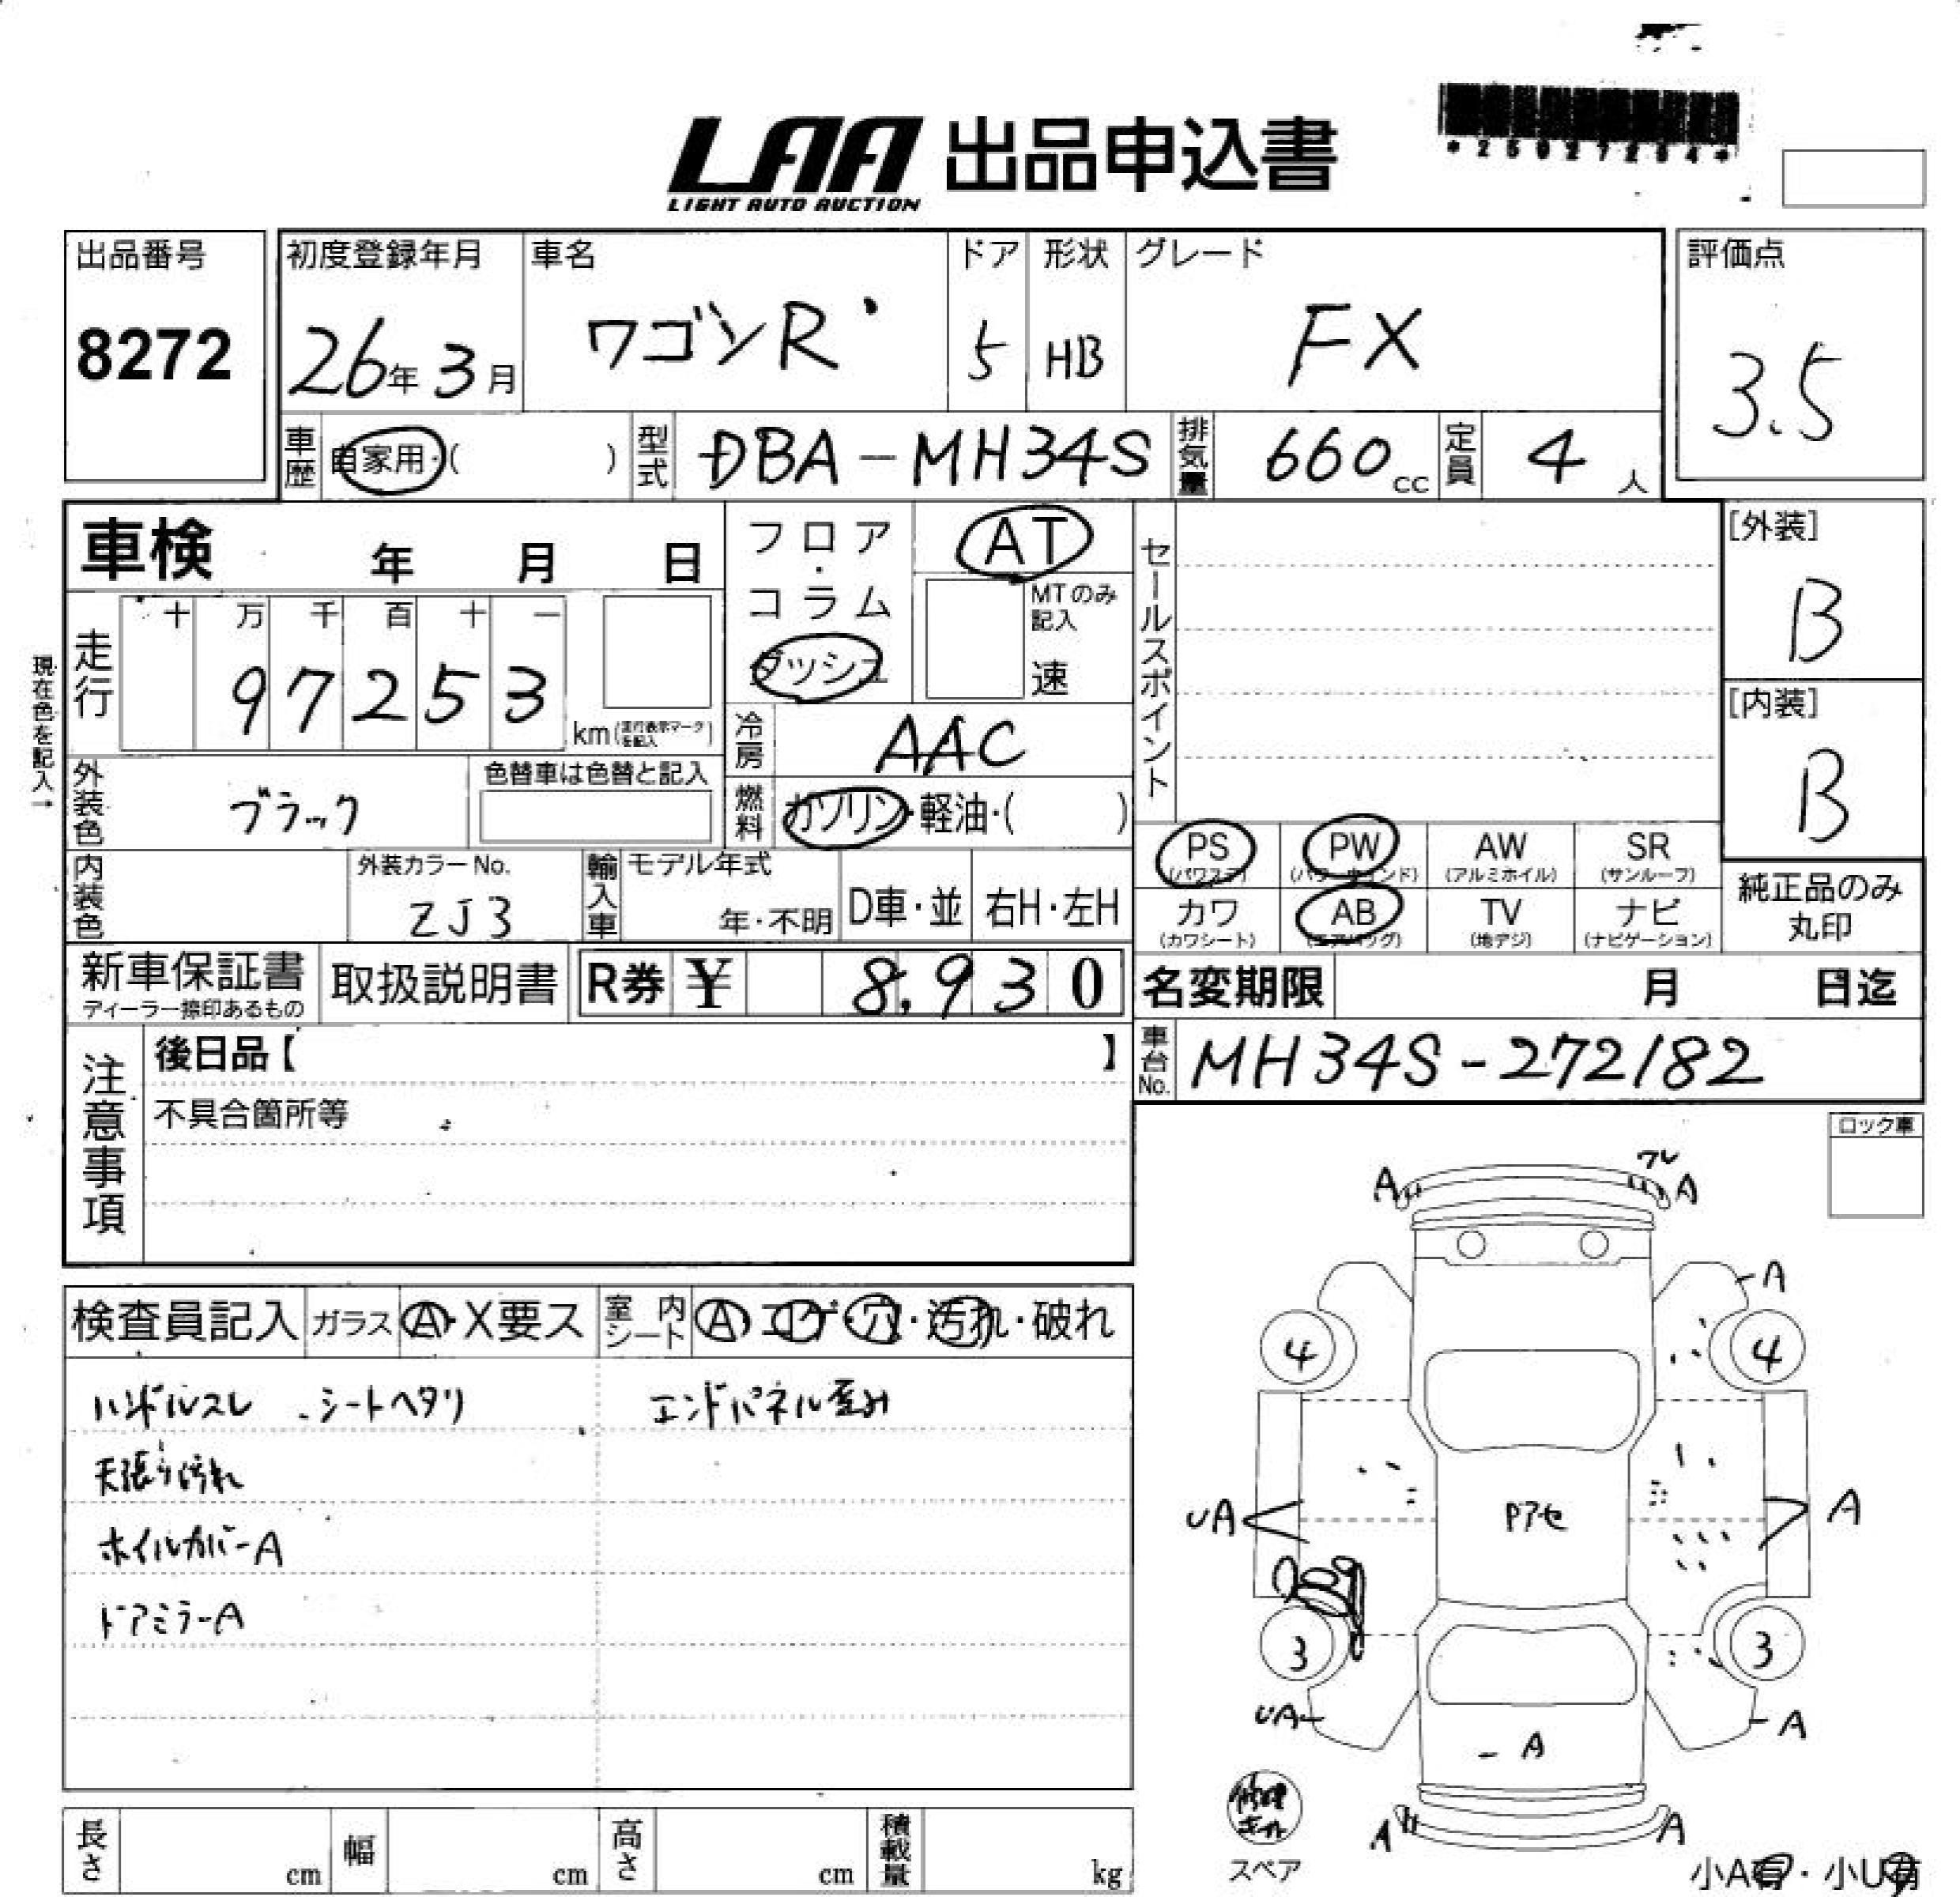 *25027284*
LAA 出品申込書
LIGHT AUTO AUCTION
出品番号
8272
初度登録年月
26年3月
車名
ワゴンR
ドア
5
形状
HB
グレード
FX
評価点
3.5
車歴 自家用・( )
型式 DBA-MH34S
排気量 660cc
定員 4人
車検 年 月 日
フロア・コラム
ダッシュ
AT
MTのみ記入
速
セールスポイント
[外装]
B
[内装]
B
現在色を記入→
走行
十 万 千 百 十 一
97253
km(走行表示マークを記入)
冷房 AAC
外装色 ブラック
色替車は色替と記入
燃料 ガソリン・軽油・( )
PS (パワステ)
PW (パワーウインド)
AW (アルミホイル)
SR (サンルーフ)
カワ (カワシート)
AB (エアバッグ)
TV (地デジ)
ナビ (ナビゲーション)
純正品のみ丸印
内装色
外装カラーNo.
ZJ3
輸入車
モデル年式
年・不明
D車・並
右H・左H
新車保証書
ディーラー捺印あるもの
取扱説明書
R券 ¥ 8,930
名変期限 月 日迄
車台No. MH34S-272182
注意事項
後日品【 】
不具合箇所等
ロック車
検査員記入
ガラス A・X要ス
室内シート A・コゲ・穴・汚れ・破れ
ハンドルスレ シートヘタリ
エンドパネル歪み
天張り汚れ
ホイルカバーA
ドアミラーA
A ワレ A
A
4 4
UA Pアセ A
3 3
UA A
A
A A
修理キット
スペア
小A有・小U有
長さ cm
幅 cm
高さ cm
積載量 kg